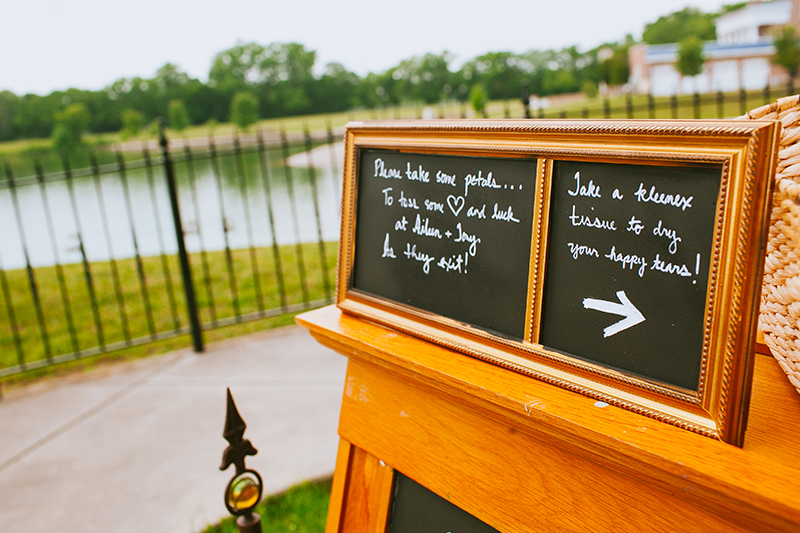 Please take some petals...
To toss some ♡ and luck
at Aileen + Joy
As they exit!
Take a kleenex
tissue to dry
your happy tears!